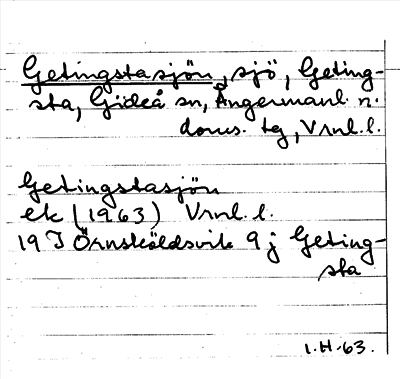 Getingstasjön, sjö, Geting-
sta, Gideå sn, Ångermanl. n.
doms. tg, Vrnl. l.
Getingstasjön
ek (1963) Vrnl. l.
19 I Örnsköldsvik 9 j Geting-
sta
1.H.63.